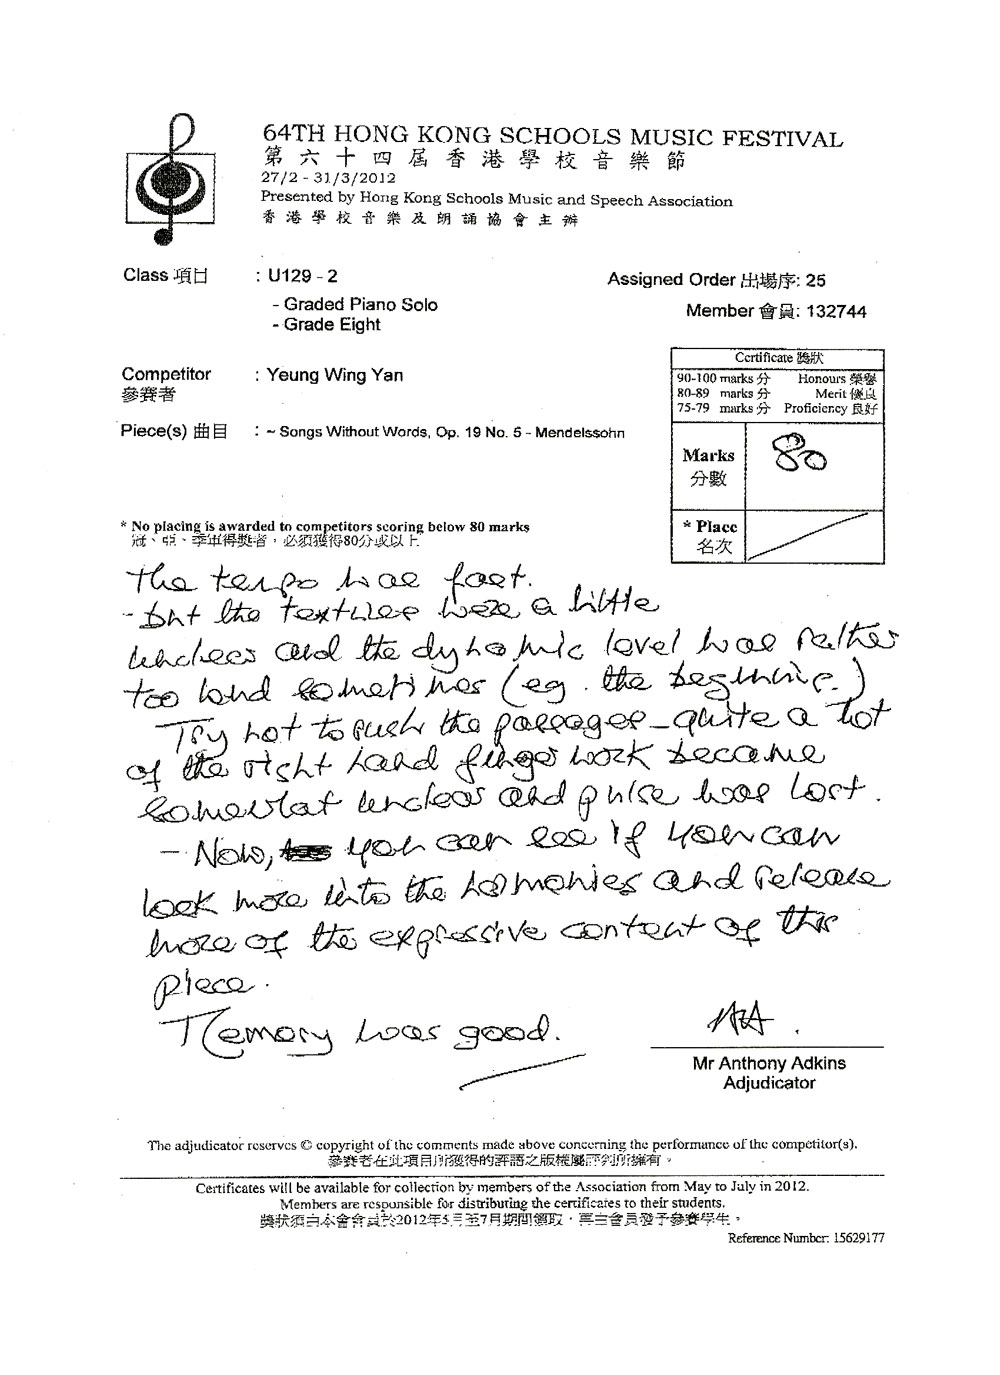 64TH HONG KONG SCHOOLS MUSIC FESTIVAL
第六十四屆香港學校音樂節
27/2 - 31/3/2012
Presented by Hong Kong Schools Music and Speech Association
香港學校音樂及朗誦協會主辦
Class 項目 : U129 - 2
- Graded Piano Solo
- Grade Eight
Assigned Order 出場序: 25
Member 會員: 132744
Competitor : Yeung Wing Yan
參賽者
Piece(s) 曲目 : ~ Songs Without Words, Op. 19 No. 5 - Mendelssohn
Certificate 獎狀
90-100 marks 分 Honours 榮譽
80-89 marks 分 Merit 優良
75-79 marks 分 Proficiency 良好
Marks 80
分數
* Place
名次
* No placing is awarded to competitors scoring below 80 marks
冠、亞、季軍得獎者，必須獲得80分或以上
The tempo was fast.
- but the textures were a little
unclear and the dynamic level was rather
too loud sometimes (eg. the beginning.)
Try not to rush the passages - quite a lot
of the right hand finger work became
somewhat unclear and pulse was lost.
- Now, you can see if you can
look more into the harmonies and release
more of the expressive content of this
piece.
Memory was good.
Mr Anthony Adkins
Adjudicator
The adjudicator reserves © copyright of the comments made above concerning the performance of the competitor(s).
參賽者在此項目所獲得的評語之版權屬評判所擁有。
Certificates will be available for collection by members of the Association from May to July in 2012.
Members are responsible for distributing the certificates to their students.
獎狀須由本會會員於2012年5月至7月期間領取，再由會員發予參賽學生。
Reference Number: 15629177